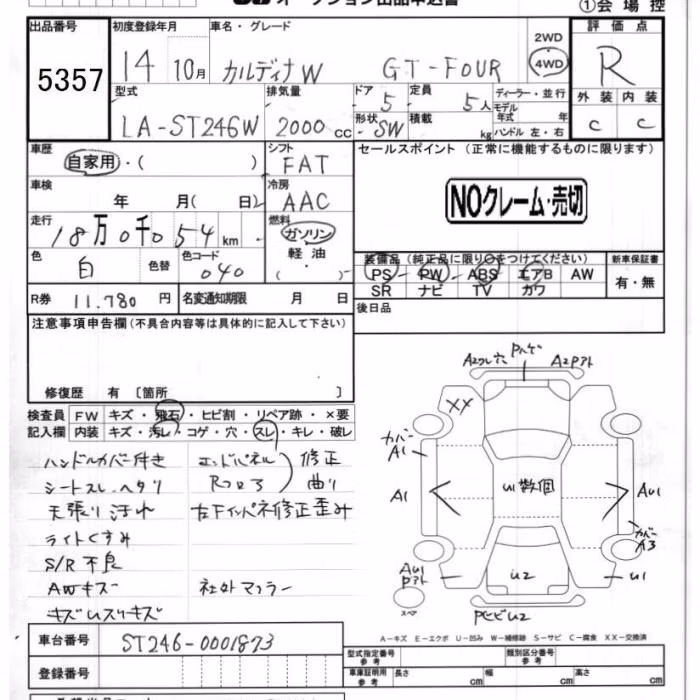 オークション出品申込書
①会場控
出品番号
5357
初度登録年月
14 10月
車名・グレード
カルディナW GT-FOUR
2WD
4WD
評価点
R
型式
LA-ST246W
排気量
2000 cc
ドア 5
定員 5人
ディーラー・並行
モデル
年式 年
形状 SW
積載 kg
ハンドル 左・右
外装 内装
C C
車歴
自家用・( )
シフト
FAT
セールスポイント (正常に機能するものに限ります)
NOクレーム・売切
車検
年 月( 日)
冷房
AAC
走行
18万0千054km
燃料
ガソリン
軽油
( )
色
白
色替
色コード
040
装備品(純正品に限り○をつけてください)
PS PW ABS エアB AW
SR ナビ TV カワ
新車保証書
有・無
R券 11.780 円
名変通知期限 月 日
後日品
注意事項申告欄(不具合内容等は具体的に記入して下さい)
修復歴 有〔箇所 〕
検査員 FW キズ・飛石・ヒビ割・リペア跡・×要
記入欄 内装 キズ・汚レ・コゲ・穴・スレ・キレ・破レ
ハンドルカバー付き
シートスレ.ヘタリ
天張り汚れ
ライトくすみ
S/R 不良
AWキズ
キズUスリキズ
エンドパネル
Rフロア
修正
曲り
左下インパネ修正歪み
社外マフラー
A2ワレ穴
A2Pアト
XX
カバー
A1
A1
U1数個
AU1
カバー
A3
AU1
Pアト
U2
U1
スペア
PヒビU2
A-キズ E-エクボ U-凹み W-補修跡 S-サビ C-腐食 XX-交換済
車台番号
ST246-0001873
登録番号
型式指定番号
参考
類別区分番号
参考
車庫証明用
参考
長さ cm
幅 cm
高さ cm